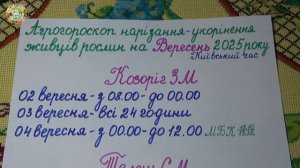 Агрогороскоп нарізання-укорінення
живців рослин на Вересень 2025 року
Київський час
Козоріг ЗМ
02 вересня - з 08.00 - до 00.00
03 вересня - всі 24 години
04 вересня - з 00.00 - до 12.00